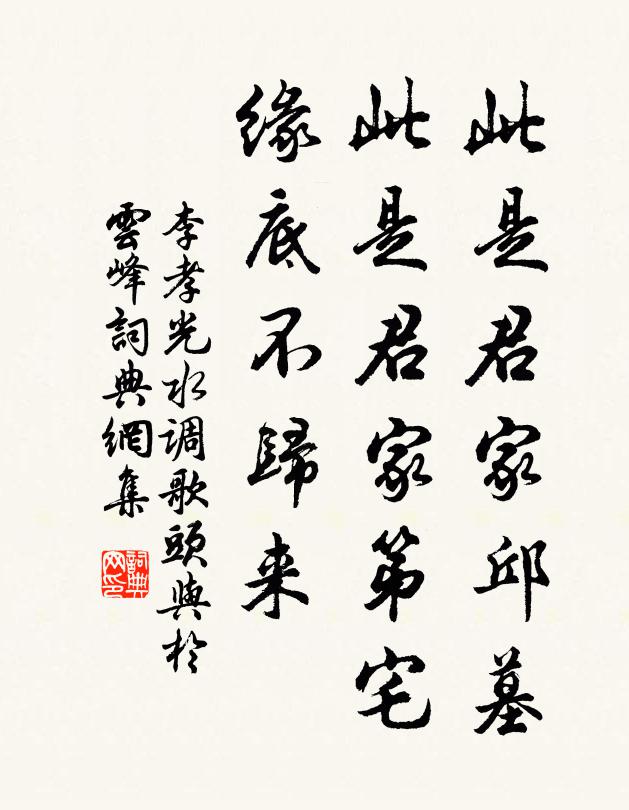 此是君家邱墓
此是君家第宅
缘底不歸来
李孝光水调歌頭與於
雲峰詞典網集
詞典網印